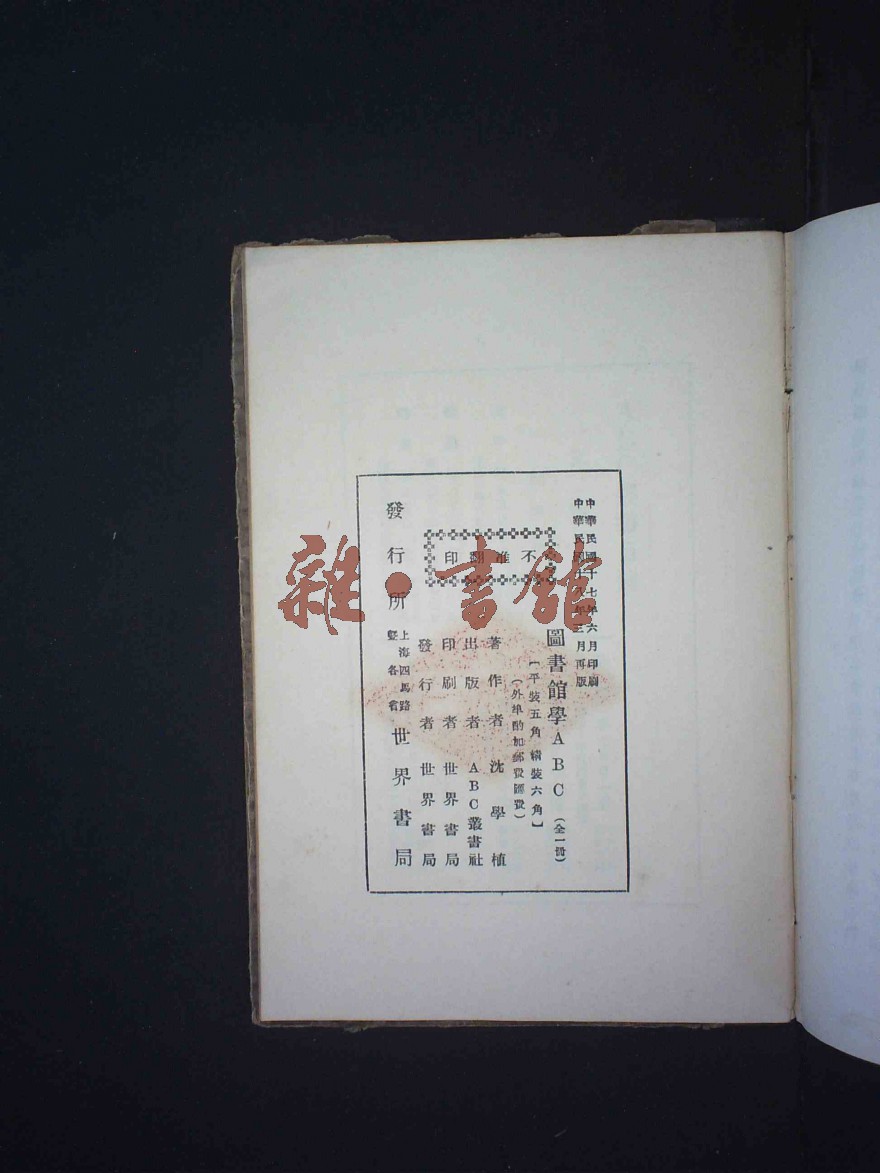 中華民國十七年六月印刷
中華民國十八年三月再版
圖書館學ABC（全一冊）
［平裝五角 精裝六角］
（外埠酌加郵費匯費）
不准翻印
著作者 沈學植
出版者 ABC叢書社
印刷者 世界書局
發行者 世界書局
發行所 上海四馬路暨各省 世界書局
雜·書館